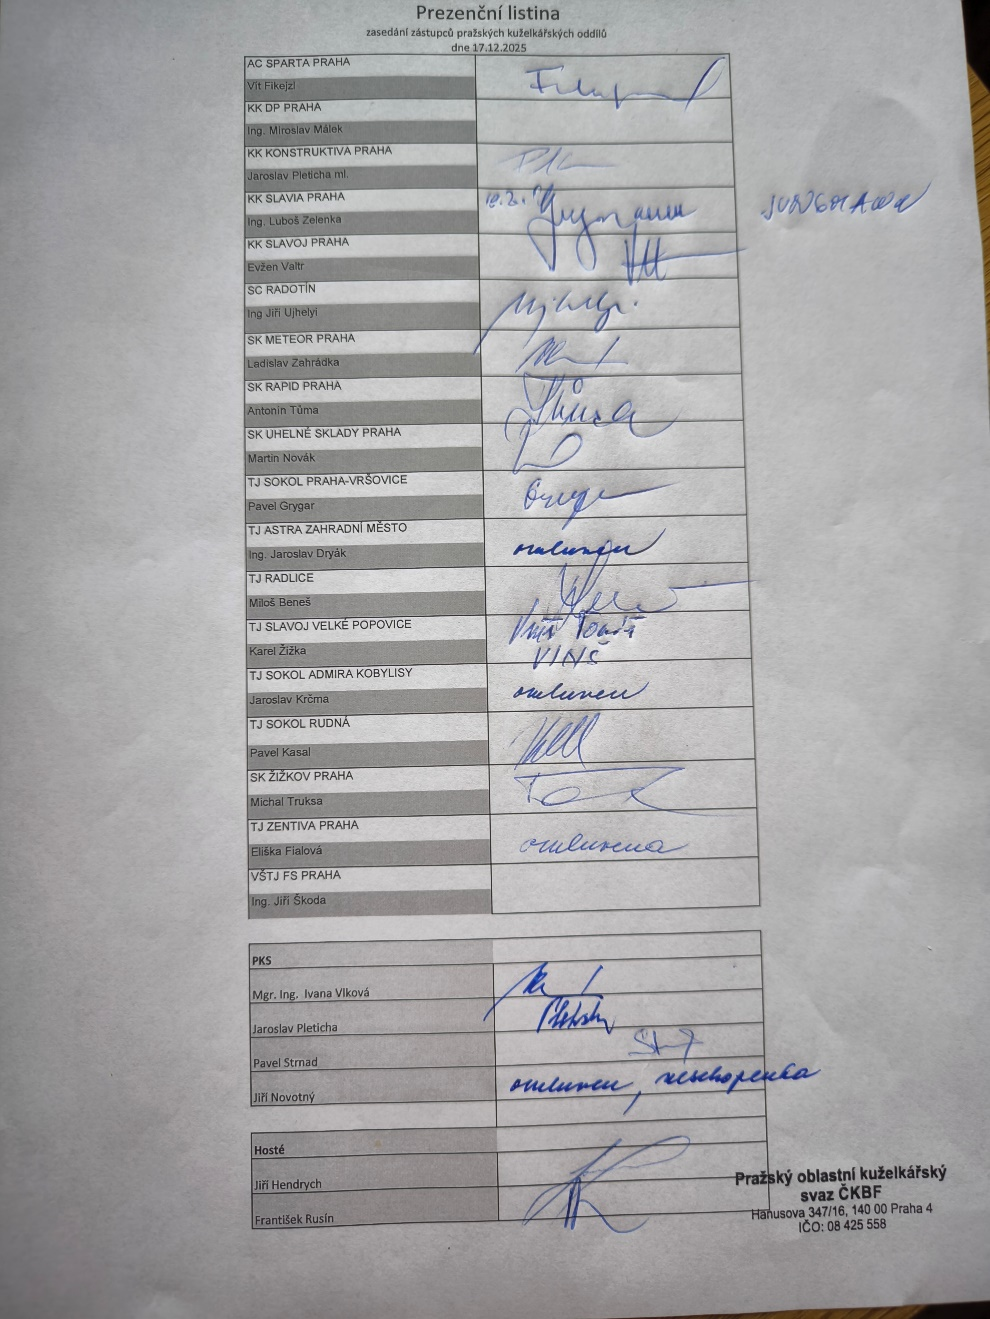 Prezenční listina
zasedání zástupců pražských kuželkářských oddílů
dne 17.12.2025
AC SPARTA PRAHA
Vít Fikejzl
KK DP PRAHA
Ing. Miroslav Málek
KK KONSTRUKTIVA PRAHA
Jaroslav Pleticha ml.
KK SLAVIA PRAHA
Ing. Luboš Zelenka
KK SLAVOJ PRAHA
Evžen Valtr
SC RADOTÍN
Ing Jiří Ujhelyi
SK METEOR PRAHA
Ladislav Zahrádka
SK RAPID PRAHA
Antonín Tůma
Tůma
SK UHELNÉ SKLADY PRAHA
Martin Novák
TJ SOKOL PRAHA-VRŠOVICE
Pavel Grygar
TJ ASTRA ZAHRADNÍ MĚSTO
Ing. Jaroslav Dryák
omluven
TJ RADLICE
Miloš Beneš
TJ SLAVOJ VELKÉ POPOVICE
Karel Žižka
Vinš Tomáš
VINŠ
TJ SOKOL ADMIRA KOBYLISY
Jaroslav Krčma
omluven
TJ SOKOL RUDNÁ
Pavel Kasal
SK ŽIŽKOV PRAHA
Michal Truksa
TJ ZENTIVA PRAHA
Eliška Fialová
omluvena
VŠTJ FS PRAHA
Ing. Jiří Škoda
PKS
Mgr. Ing. Ivana Vlková
Jaroslav Pleticha
Pavel Strnad
Jiří Novotný
omluven, neschopenka
Hosté
Jiří Hendrych
František Rusín
Pražský oblastní kuželkářský
svaz ČKBF
Hanusova 347/16, 140 00 Praha 4
IČO: 08 425 558